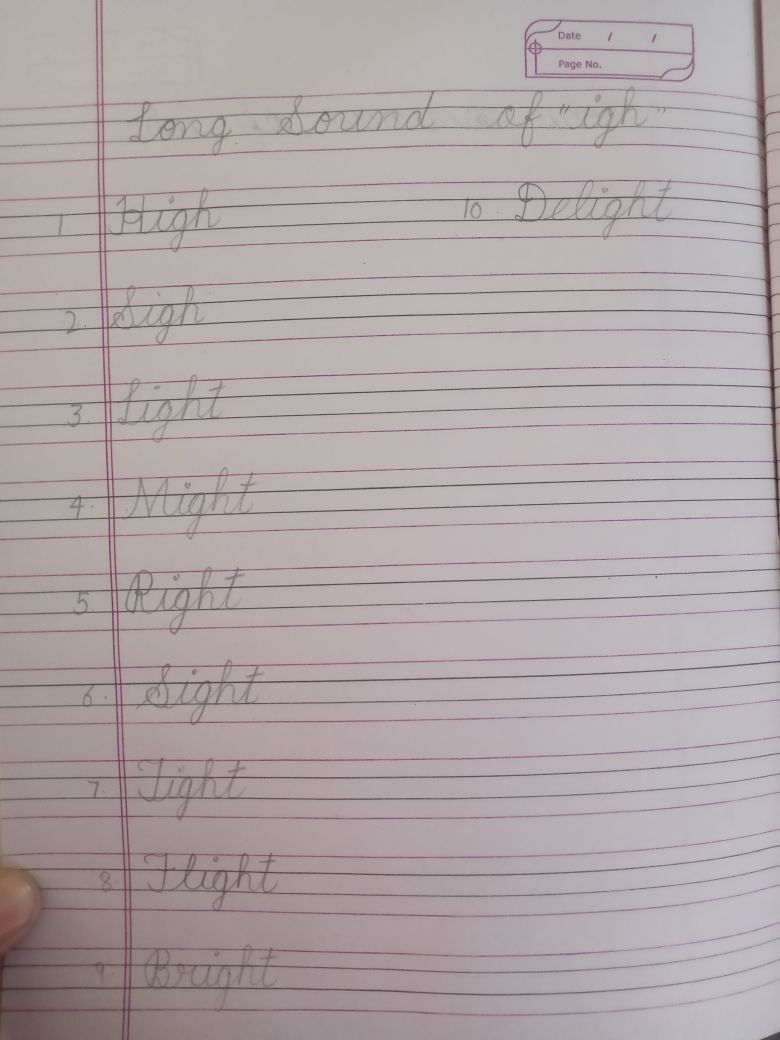 Date / /
Page No.
Long Sound of "igh"
1 High
10 Delight
2. Sigh
3. Light
4. Might
5 Right
6. Sight
7. Tight
8. Flight
9. Bright